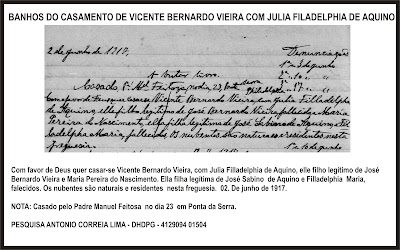 BANHOS DO CASAMENTO DE VICENTE BERNARDO VIEIRA COM JULIA FILADELPHIA DE AQUINO
2 de junho de 1917.
Denunciações
1ª 3 de junho
2ª 10 "
3ª 17 "
Com favor de Deus quer casar-se Vicente Bernardo Vieira, com Julia Filladelphia
de Aquino, elle filho legitimo de José Bernardo Vieira e Maria
Pereira do Nascimento. Ella filha legitima de José Sabino de Aquino e
Maria, fallecidos. Os nubentes são naturaes e residentes nesta
freguesia.
Com favor de Deus quer casar-se Vicente Bernardo Vieira, com Julia Filladelphia de Aquino, elle filho legitimo de José
Bernardo Vieira e Maria Pereira do Nascimento. Ella filha legitima de José Sabino de Aquino e Filladelphia Maria,
falecidos. Os nubentes são naturais e residentes nesta freguesia. 02. De junho de 1917.
NOTA: Casado pelo Padre Manuel Feitosa no dia 23 em Ponta da Serra.
PESQUISA ANTONIO CORREIA LIMA - DHDPG - 4129094 01504